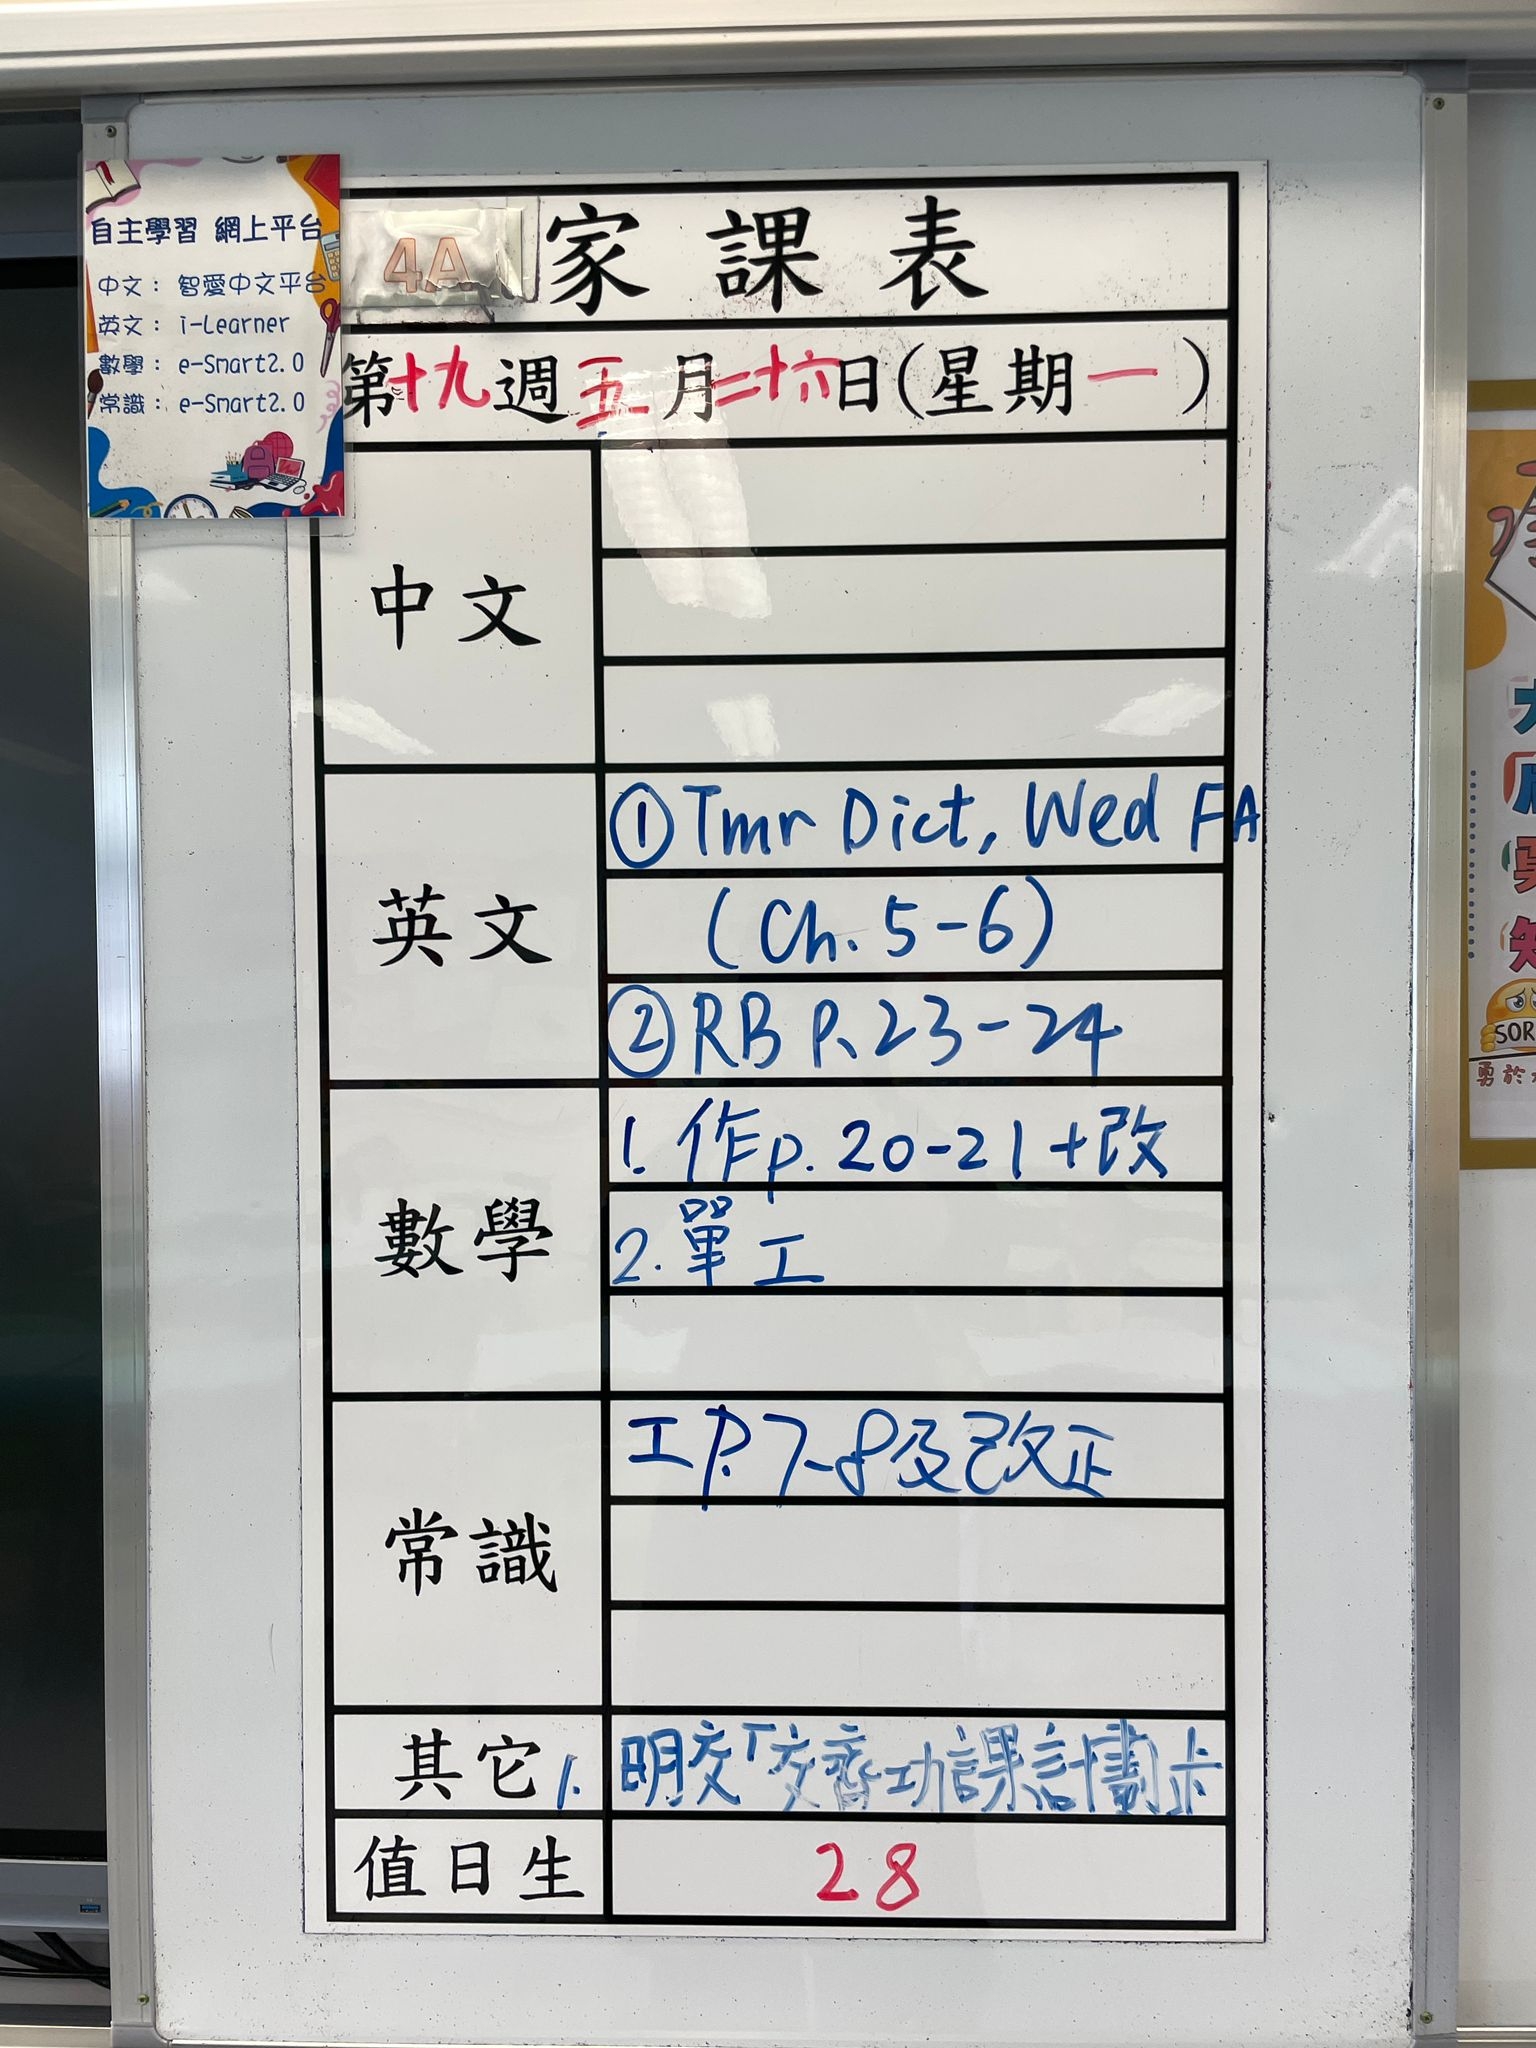 自主學習 網上平台
中文： 智愛中文平台
英文： i-Learner
數學： e-Smart2.0
常識： e-Smart2.0
4A 家課表
第十九週五月二十六日(星期一)
中文
英文
①Tmr Dict, Wed FA
(Ch. 5-6)
②RB P.23-24
數學
1. 作p. 20-21+改
2. 單工
常識
工P.7-8及改正
其它
1. 明交「交齊功課計劃卡
值日生
28
SOR
勇於